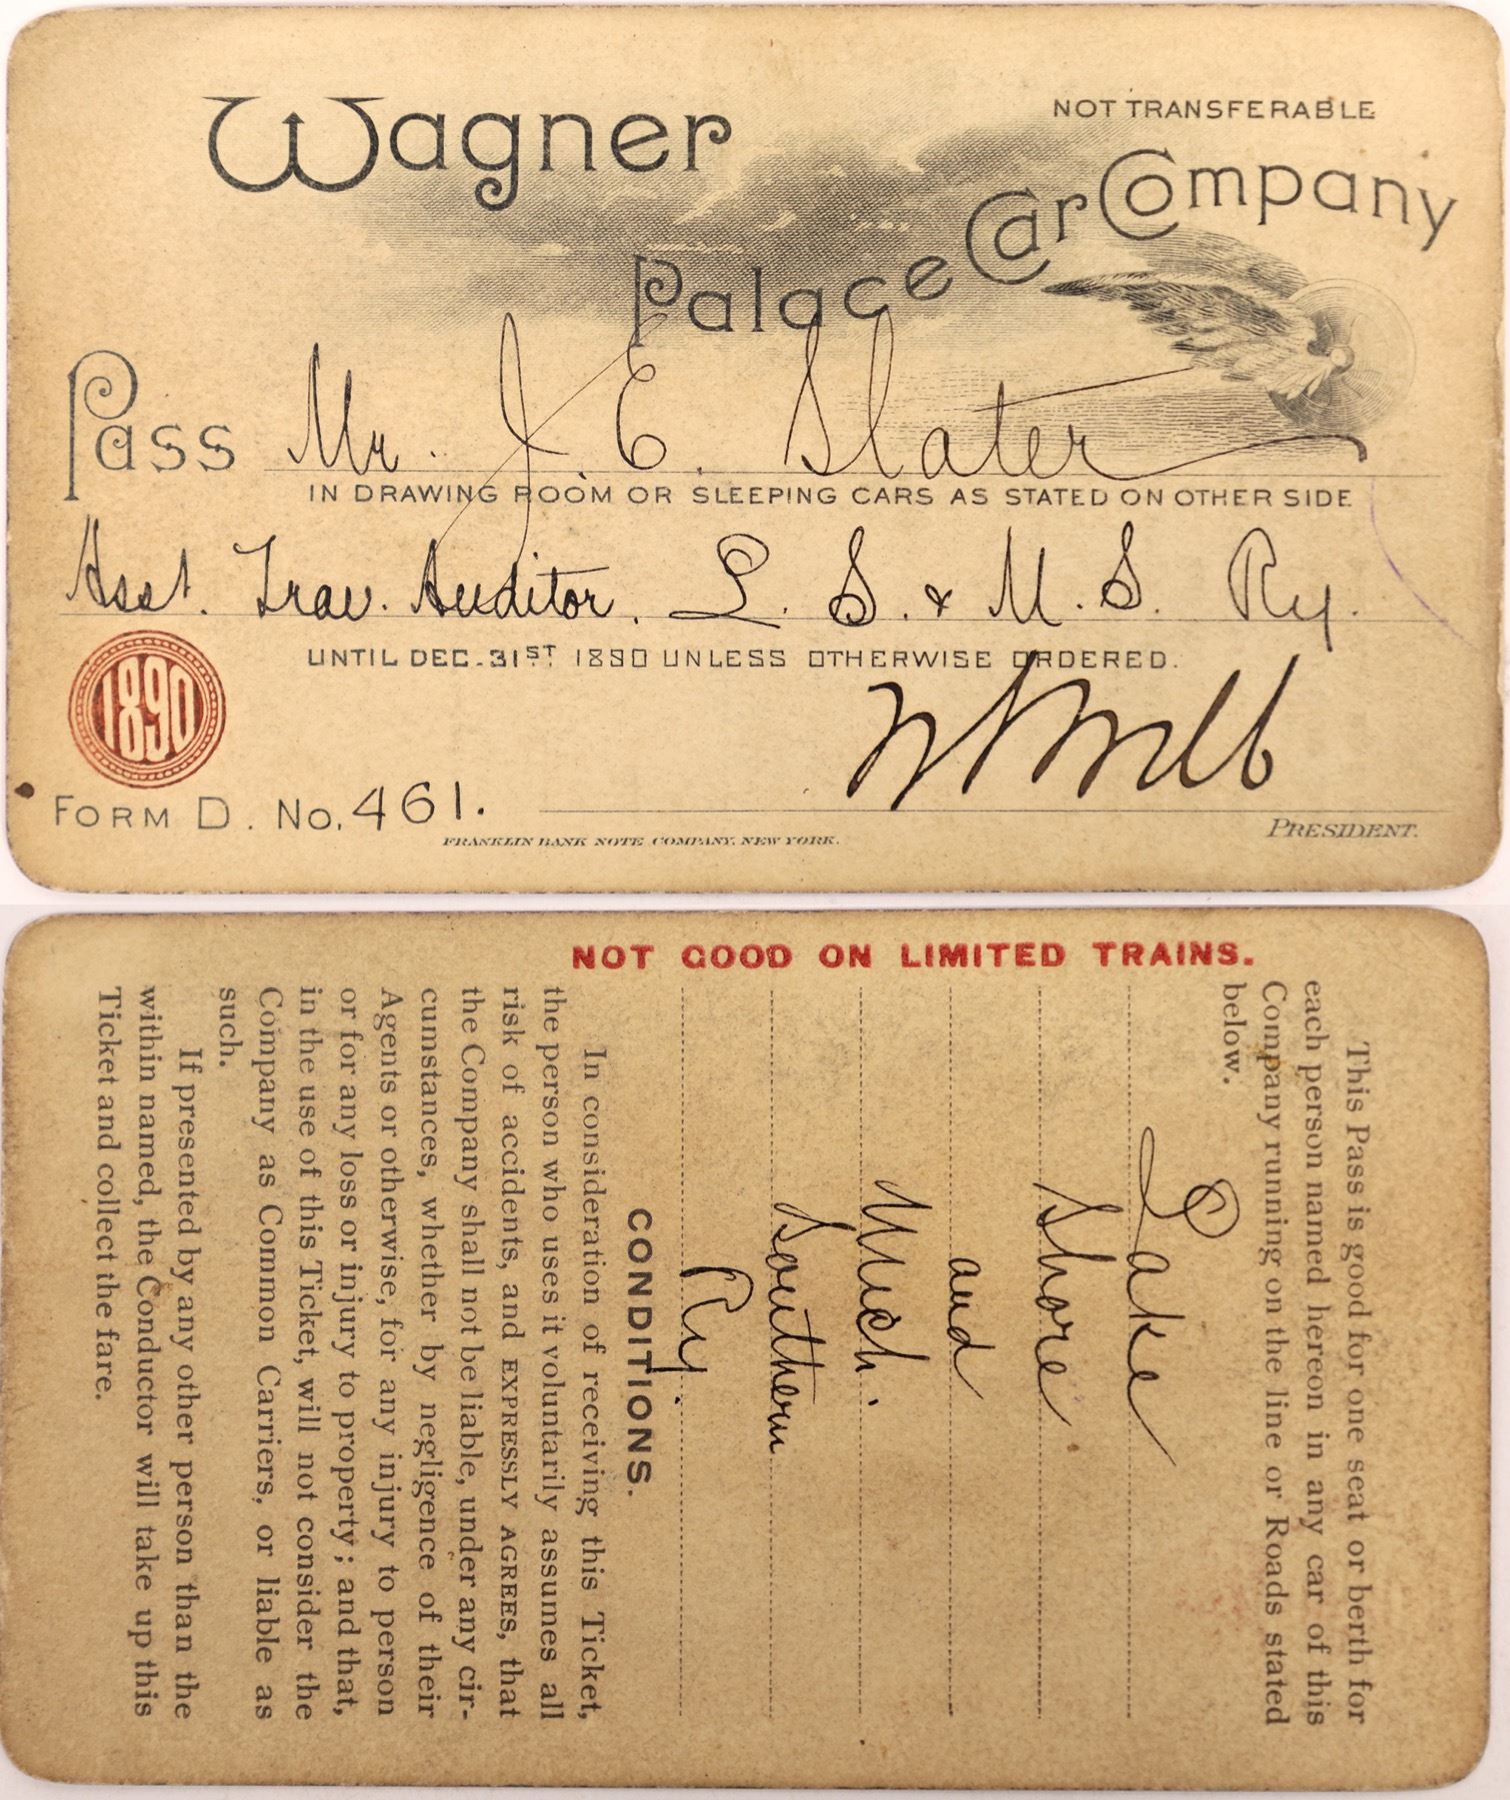 Wagner
NOT TRANSFERABLE
Palace Car Company
Pass Mr. J. E. Slater
IN DRAWING ROOM OR SLEEPING CARS AS STATED ON OTHER SIDE
Asst. Trav. Auditor. L. S. & M. S. Ry.
UNTIL DEC. 31ST 1890 UNLESS OTHERWISE ORDERED.
1890
FORM D. No. 461.
PRESIDENT.
FRANKLIN BANK NOTE COMPANY, NEW YORK.
NOT GOOD ON LIMITED TRAINS.
This Pass is good for one seat or berth for
each person named hereon in any car of this
Company running on the line or Roads stated
below.
Lake
Shore
and
Mich.
Southern
Ry.
CONDITIONS.
In consideration of receiving this Ticket,
the person who uses it voluntarily assumes all
risk of accidents, and EXPRESSLY AGREES, that
the Company shall not be liable, under any cir-
cumstances, whether by negligence of their
Agents or otherwise, for any injury to person
or for any loss or injury to property; and that,
in the use of this Ticket, will not consider the
Company as Common Carriers, or liable as
such.
If presented by any other person than the
within named, the Conductor will take up this
Ticket and collect the fare.